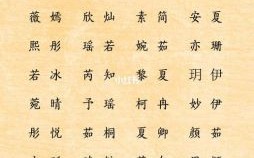 薇嫣 欣灿 素简 安夏
熙彤 瑶若 婉茹 亦珊
若冰 芮知 黎夏 玥伊
菀晴 予瑶 柯冉 妙伊
彤悦 茹桐 夏卿 颜茹